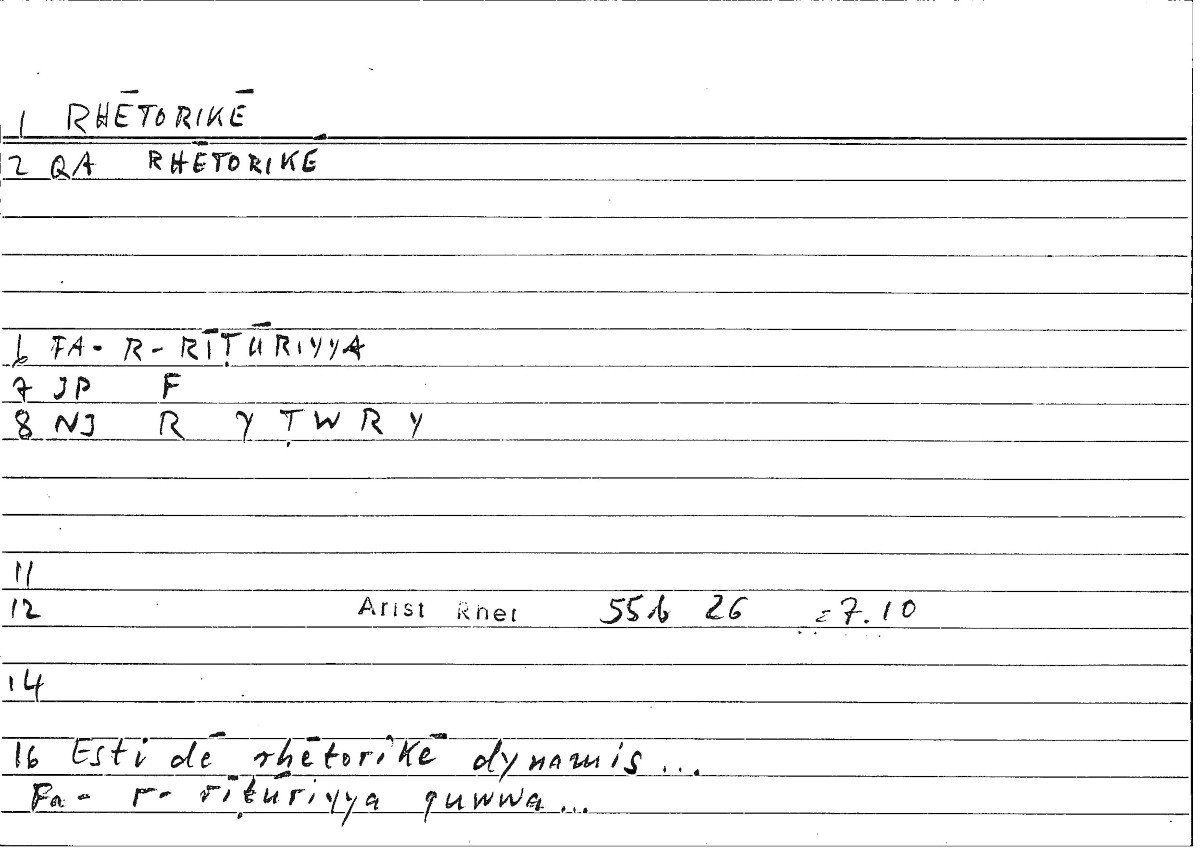 1 RHĒTORIKĒ
2 QA RHĒTORIKĒ
6 FA- R- RĪṬŪRIYYA
7 JP F
8 NJ R Y Ṭ W R Y
11
12 Arist Rhet 55b 26 =7.10
14
16 Esti dē rhētorikē dynamis...
Fa- r- rīṭūriyya quwwa...